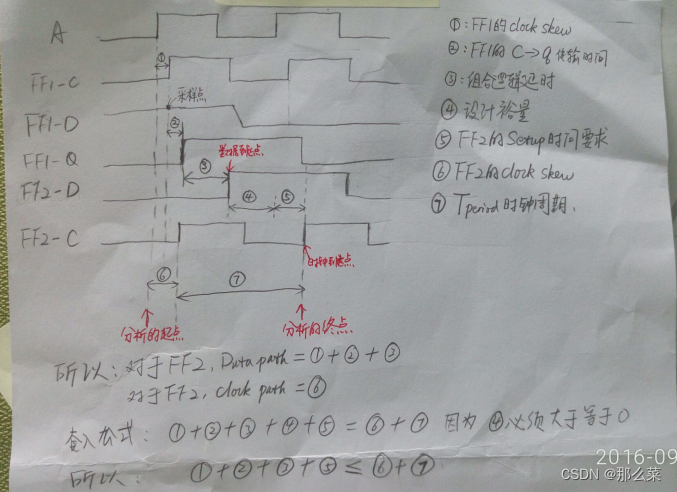 A
FF1-C
FF1-D
FF1-Q
FF2-D
FF2-C
①
采样点
②
③
数据到达点
④
⑤
时钟到达点
⑥
⑦
分析的起点
分析的终点
①:FF1的clock skew
②:FF1的C→q传输时间
③:组合逻辑延时
④设计裕量
⑤FF2的Setup时间要求
⑥FF2的clock skew
⑦Tperiod时钟周期.
所以:对于FF2,Data path=①+②+③
对于FF2,clock path=⑥
套入公式:①+②+③+④+⑤=⑥+⑦ 因为④必须大于等于0
所以: ①+②+③+⑤≤⑥+⑦
2016-09
CSDN @那么菜